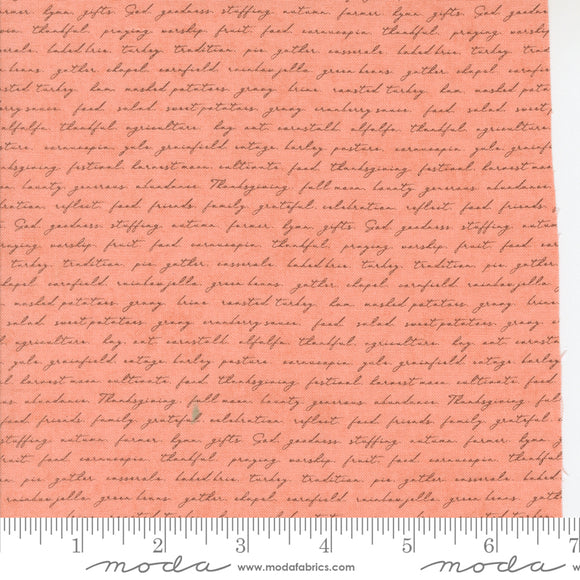 farmer. lynn. gifts. God. goodness. stuffing. autumn. farmer. lynn. gifts. God. goodness
thankful. praying. worship. fruit. food. cornucopia. thankful. praying. worship
casserole. baked brie. turkey. tradition. pie. gather. casserole. baked brie. turkey. trad
beans. gather. chapel. cornfield. rainbow jello. green beans. gather. chapel. cornfi
roasted turkey. ham. mashed potatoes. gravy. brine. roasted turkey. ham. mashed potat
cranberry sauce. food. salad. sweet potatoes. gravy. cranberry sauce. food. salad. sweet
alfalfa. thankful. agriculture. hay. oat. cornstalk. alfalfa. thankful. agriculture
pasture. cornucopia. yule. grainfield. cottage. barley. pasture. cornucopia. yule. grainfi
thanksgiving. festival. harvest moon. cultivate. food. thanksgiving. festival. harvest
bounty. generous. abundance. Thanksgiving. full moon. bounty. generous. abundance
celebration. reflect. food. friends. family. grateful. celebration. reflect. food. friends
God. goodness. stuffing. autumn. farmer. lynn. gifts. God. goodness. stuffing. autumn
praying. worship. fruit. food. cornucopia. thankful. praying. worship. fruit. food. cor
turkey. tradition. pie. gather. casserole. baked brie. turkey. tradition. pie. gather
chapel. cornfield. rainbow jello. green beans. gather. chapel. cornfield. rainbow jello
mashed potatoes. gravy. brine. roasted turkey. ham. mashed potatoes. gravy. brine
salad. sweet potatoes. gravy. cranberry sauce. food. salad. sweet potatoes. gravy
agriculture. hay. oat. cornstalk. alfalfa. thankful. agriculture. hay. oat. cornst
yule. grainfield. cottage. barley. pasture. cornucopia. yule. grainfield. cottage. barley
harvest moon. cultivate. food. thanksgiving. festival. harvest moon. cultivate. food
abundance. Thanksgiving. full moon. bounty. generous. abundance. Thanksgiving. ful
food. friends. family. grateful. celebration. reflect. food. friends. family. grateful
stuffing. autumn. farmer. lynn. gifts. God. goodness. stuffing. autumn. farmer. lynn
fruit. food. cornucopia. thankful. praying. worship. fruit. food. cornucopia. thankful
pie. gather. casserole. baked brie. turkey. tradition. pie. gather. casserole. baked brie
rainbow jello. green beans. gather. chapel. cornfield. rainbow jello. green beans. gat
1 2 3 4 5 6 7
moda www.modafabrics.com moda